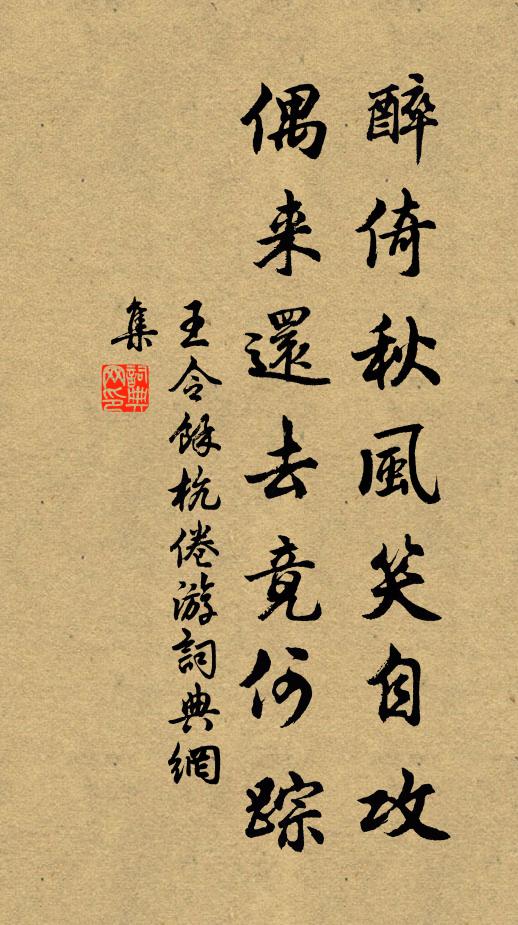 醉倚秋風笑自攻
偶来還去竟何踪
王令餘杭倦游詞典網
集
詞典网印